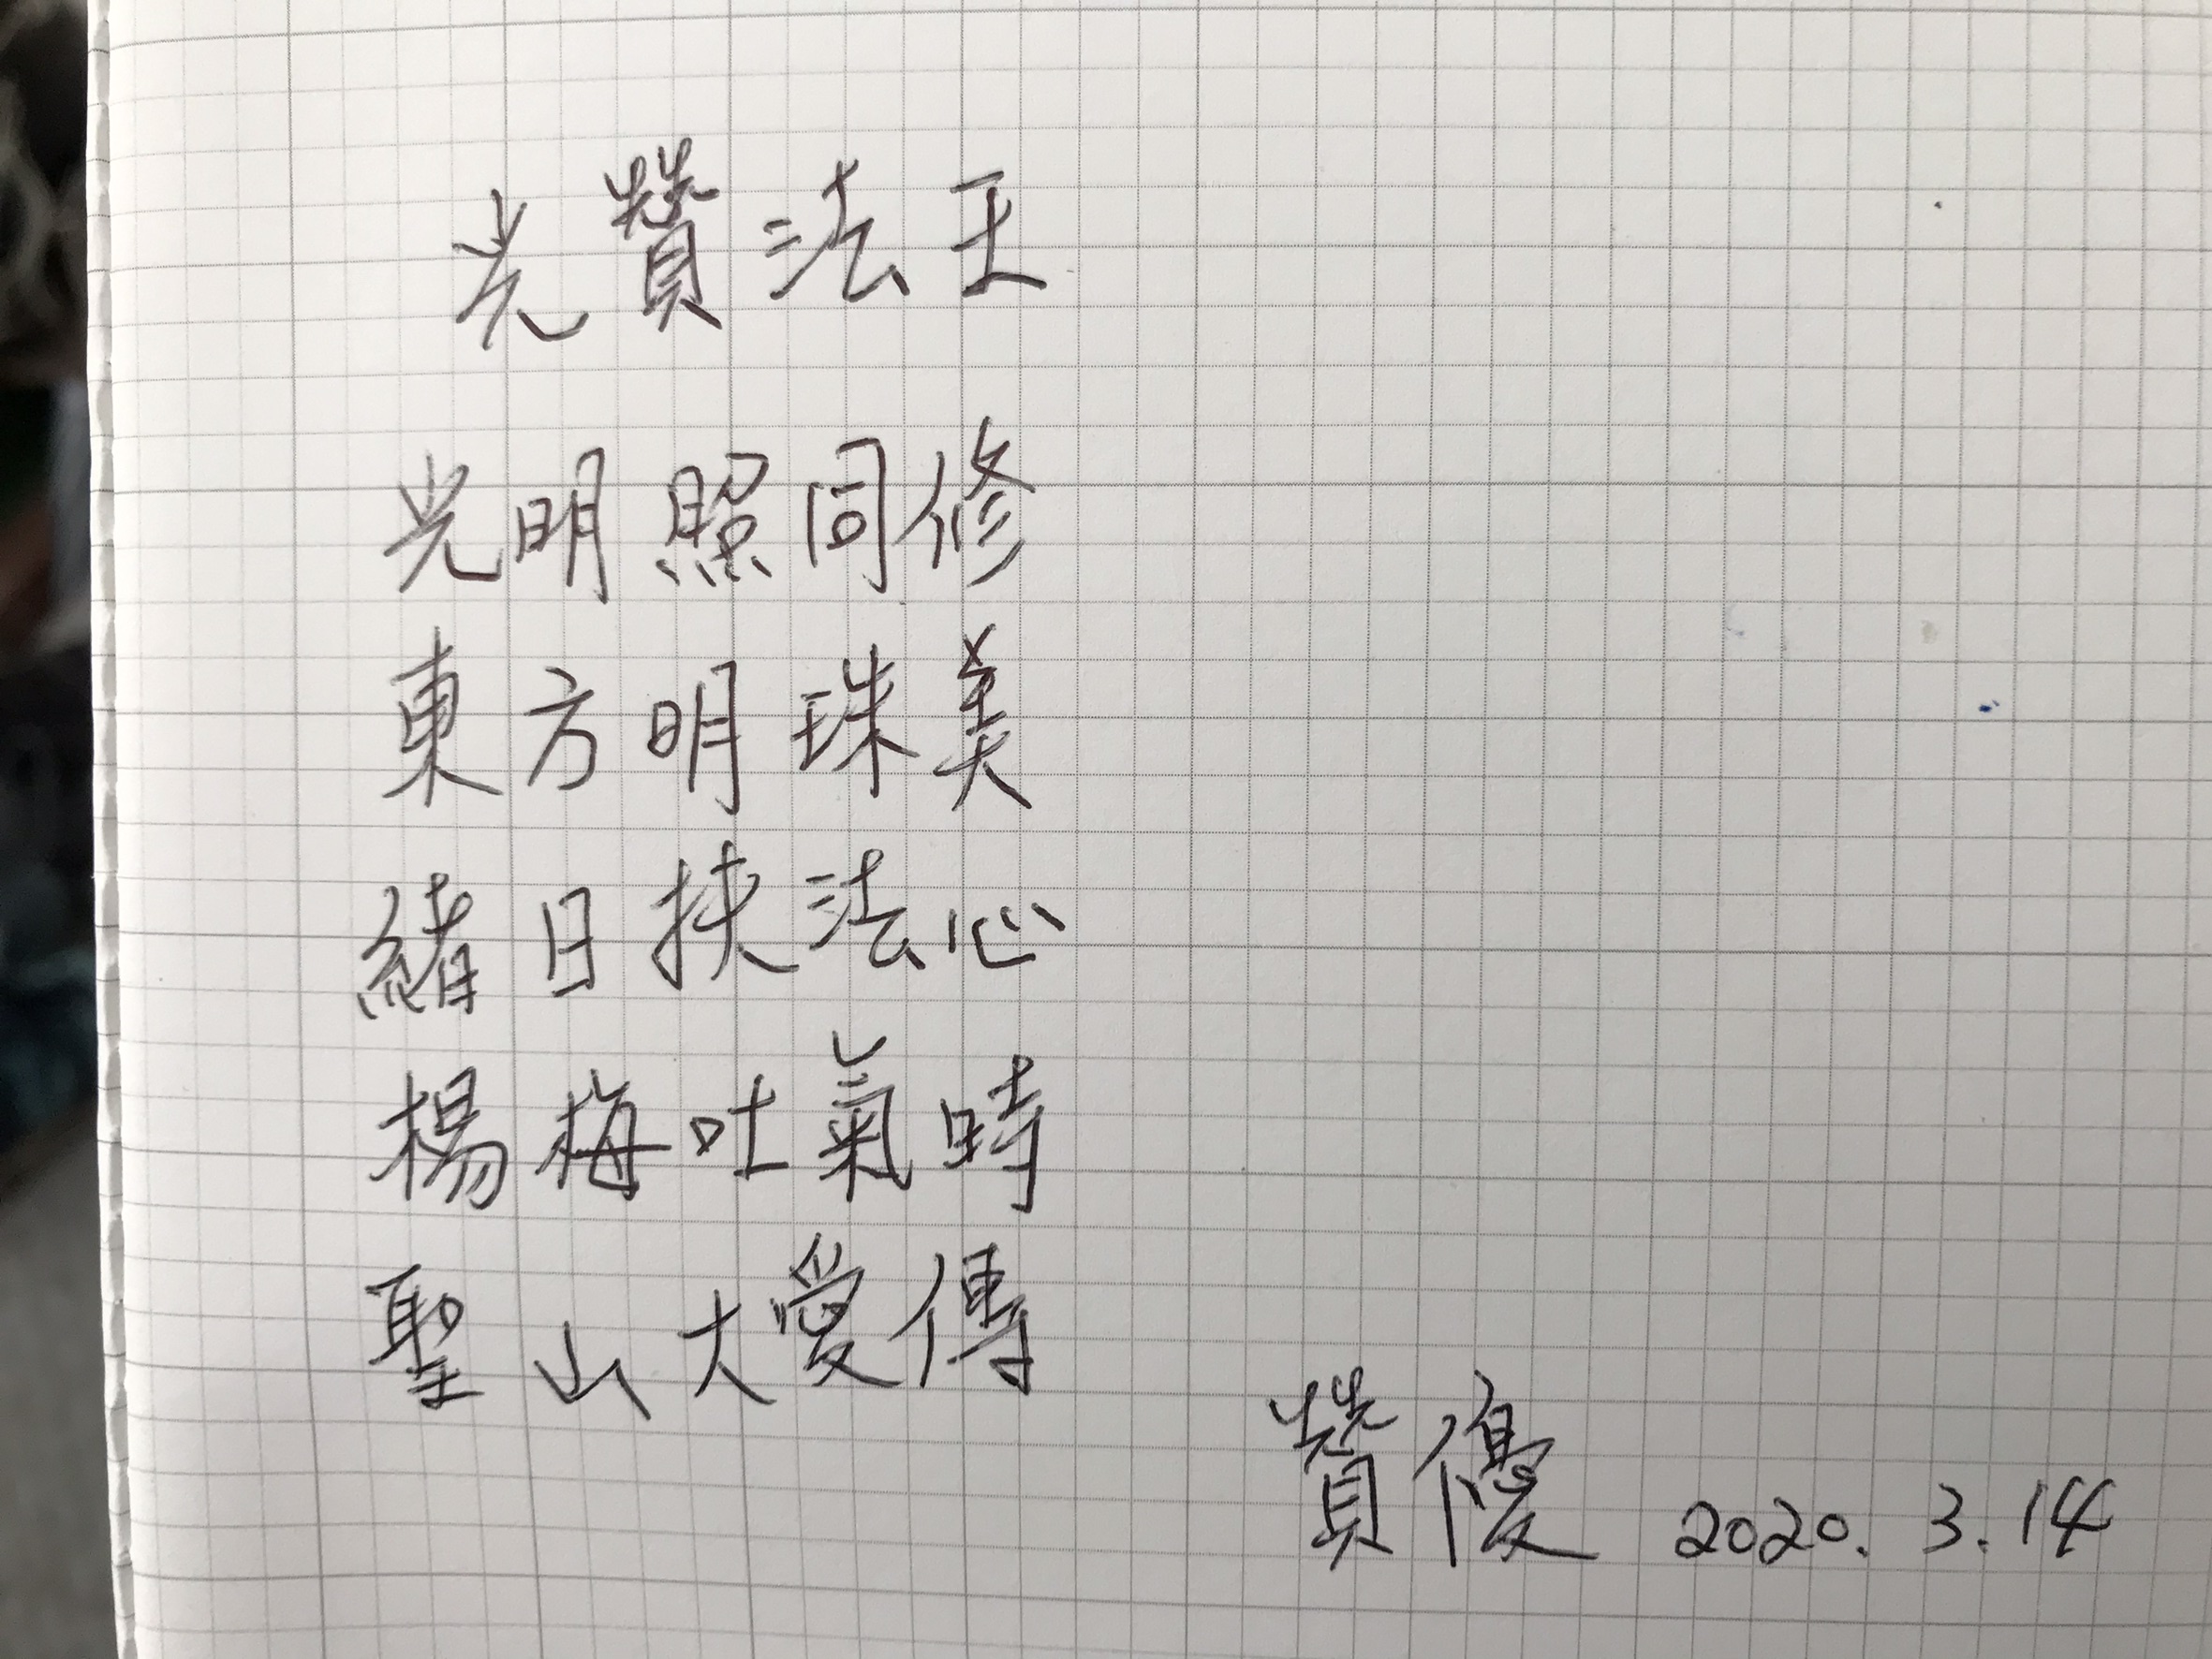 光贊法王
光明照同修
東方明珠美
緒日扶法心
楊梅吐氣時
聖山大愛傳
贊優 2020.3.14